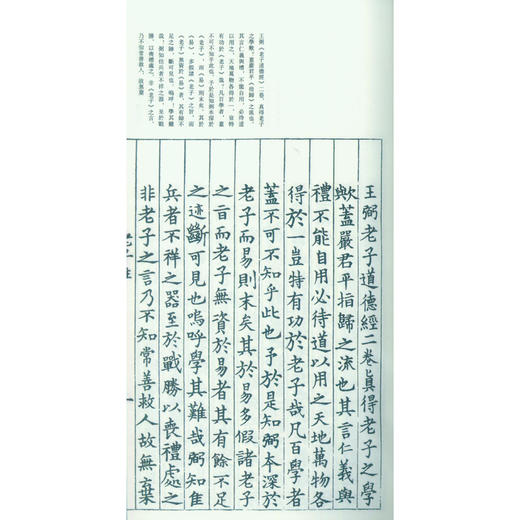 王弼《老子道德經》二卷，真得老子
之學歟，蓋嚴君平《指歸》之流也。
其言仁義與禮，不能自用，必待道
以用之，天地萬物各得於一，豈特
有功於《老子》哉。凡百學者，蓋
不可不知乎此也。予於是知弼本深於
《老子》，而《易》則末矣。其於
《易》，多假諸《老子》之旨，而
《老子》無資於《易》者，其有餘不
足之迹，斷可見也。嗚呼，學其難
哉。弼知佳兵者不祥之器，至於戰
勝，以喪禮處之，非《老子》之言，
乃不知常善救人，故無棄
王弼老子道德經二卷真得老子之學
歟蓋嚴君平指歸之流也其言仁義與
禮不能自用必待道以用之天地萬物各
得於一豈特有功於老子哉凡百學者
蓋不可不知乎此也予於是知弼本深於
老子而易則末矣其於易多假諸老子
之旨而老子無資於易者其有餘不足
之迹斷可見也嗚呼學其難哉弼知佳
兵者不祥之器至於戰勝以喪禮處之
非老子之言乃不知常善救人故無棄